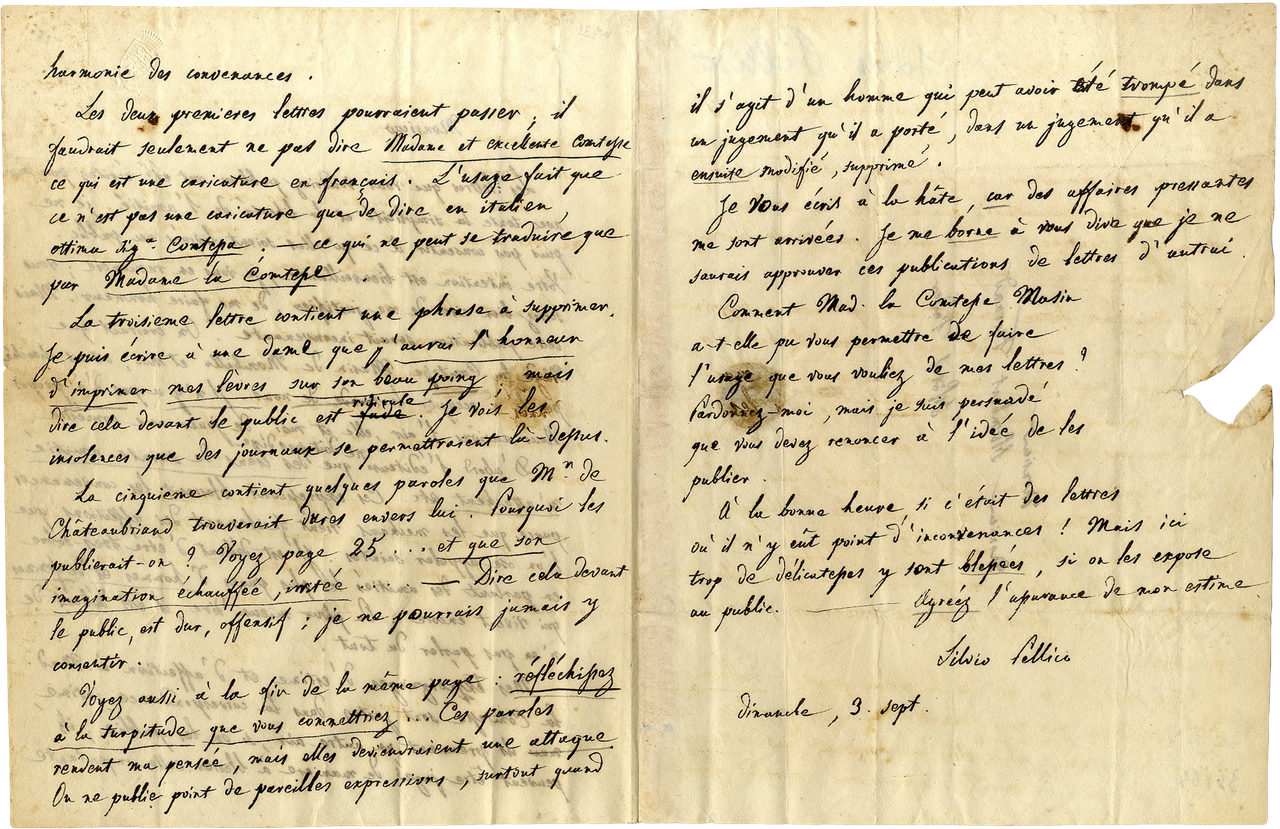 harmonie des convenances.
Les deux premieres lettres pourraient passer; il
faudrait seulement ne pas dire Madame et excellente Comtesse
ce qui est une caricature en français. L'usage fait que
ce n'est pas une caricature que de dire en italien,
ottima Sig.ª Contessa: — ce qui ne peut se traduire que
par Madame la Comtesse
La troisieme lettre contient une phrase à supprimer.
Je puis écrire à une dame que j'aurai l'honneur
d'imprimer mes lèvres sur son beau poing; mais
dire cela devant le public est fade ridicule. Je vois les
insolences que des journaux se permettraient là-dessus.
La cinquieme contient quelques paroles que Mr. de
Châteaubriand trouverait dures envers lui. Pourquoi les
publierait-on? Voyez page 25 ... et que son
imagination échauffée, irritée — Dire cela devant
le public, est dur, offensif; je ne pourrais jamais y
consentir.
Voyez aussi à la fin de la même page: réfléchissez
à la turpitude que vous commettriez... Ces paroles
rendent ma pensée, mais elles deviendraient une attaque.
On ne public point de pareilles expressions, surtout quand
il s'agit d'un homme qui peut avoir été trompé dans
un jugement qu'il a porté, dans un jugement qu'il a
ensuite modifié, supprimé.
Je vous écris à la hâte, car des affaires pressantes
me sont arrivées. Je me borne à vous dire que je ne
saurais approuver ces publications de lettres d'autrui.
Comment Mad. la Comtesse Masin
a-t-elle pu vous permettre de faire
l'usage que vous vouliez de mes lettres?
Pardonnez-moi, mais je suis persuadé
que vous devez renoncer à l'idée de les
publier.
À la bonne heure, si c'était des lettres
où il n'y eût point d'inconvenances! Mais ici
trop de délicatesses y sont blessées, si on les expose
au public. — Agréez l'assurance de mon estime.
Silvio Pellico
dimanche, 3. sept.